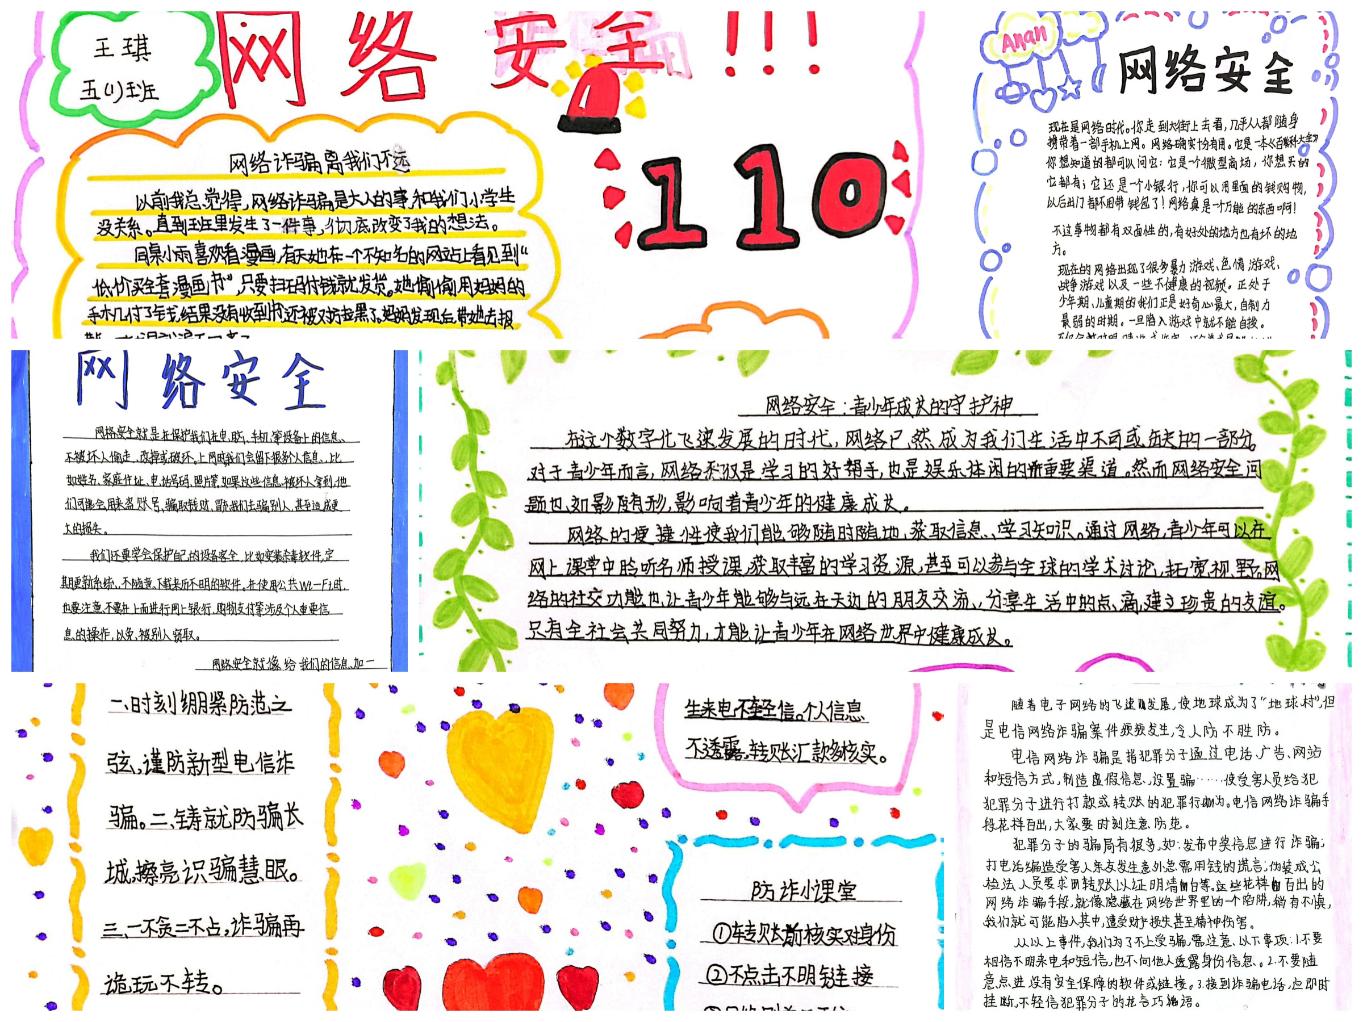 王琪
五(1)班
网络安全!!!
网络诈骗离我们不远
以前我总觉得,网络诈骗是大人的事,和我们小学生
没关系。直到班里发生了一件事,彻底改变了我的想法。
同桌小雨喜欢看漫画,有天她在一个不知名的网站上看见到“
低价买全套漫画书”,只要扫码付钱就发货。她偷偷用妈妈的
手机付了钱,结果没有收到书还被对方拉黑了。妈妈发现后,带她去报
110
Anan
网络安全
现在是网络时代。你走到大街上去看,几乎人人都随身
携带着一部手机上网。网络确实十分有用。它是一本《百科大全》
你想知道的都可以问它;它是个微型商场,你想买的
它都有;它还是一个小银行,你可以用里面的钱购物,
以后出门都不用带钱包了!网络真是一个万能的东西啊!
不过事物都有双面性的,有好处的地方也有坏的地
方。
现在的网络出现了很多暴力游戏、色情游戏、
战争游戏以及一些不健康的视频。正处于
少年期、儿童期的我们正是好奇心最大,自制力
最弱的时期。一旦陷入游戏中就不能自拔。
网络安全
网络安全就是在保护我们在电脑、手机等设备上的信息、
不被坏人偷走、改掉或破坏。上网时我们会留下很多个人信息、比
如姓名、家庭住址、电话号码、照片等,如果这些信息被坏人拿到,他
们可能会用来盗账号、骗取钱财、
大的损失。
我们还要学会保护自己的设备安全,比如安装杀毒软件,定
期更新系统、不随意下载来历不明的软件。在使用公共Wi-Fi时,
也要注意不要在上面进行网上银行、购物支付等涉及个人重要信
息的操作,以免被别人窃取。
网络安全就像给我们的信息加一
网络安全:青少年成长的守护神
在这个数字化飞速发展的时代,网络已然成为我们生活中不可或缺的一部分。
对于青少年而言,网络不仅是学习的好帮手,也是娱乐休闲的重要渠道。然而网络安全问
题也如影随形,影响着青少年的健康成长。
网络的便捷性使我们能够随时随地,获取信息、学习知识。通过网络,青少年可以在
网上课堂中聆听名师授课,获取丰富的学习资源,甚至可以参与全球的学术讨论,拓宽视野。网
络的社交功能也让青少年能够与远在天边的朋友交流、分享生活中的点滴,建立珍贵的友谊。
只有全社会共同努力,才能让青少年在网络世界中健康成长。
一、时刻绷紧防范之
弦,谨防新型电信诈
骗。二、铸就防骗长
城,擦亮识骗慧眼。
三、一不贪二不占,诈骗再
诡玩不转。
生来电不轻信。个人信息
不透露,转账汇款多核实。
防诈小课堂
①转账前核实对身份
②不点击不明链接
随着电子网络的飞速发展,使地球成为了“地球村”,但
是电信网络诈骗案件频频发生,令人防不胜防。
电信网络诈骗是指犯罪分子通过电话、广告、网站
和短信方式,制造虚假信息,设置骗……使受害人员给犯
犯罪分子进行打款或转账的犯罪行为。电信网络诈骗手
段花样百出,大家要时刻注意防范。
犯罪分子的骗局有很多,如:发布中奖信息进行诈骗;
打电话编造受害人亲友发生意外急需用钱的谎言;伪装成公
检法人员要求转账以证明清白等,这些花样百出的
网络诈骗手段,就像隐藏在网络世界里的一个陷阱,稍有不慎,
我们就可能陷入其中,遭受财产损失甚至精神伤害。
从以上事件,我们为了不上受骗,需注意以下事项:1.不要
相信不明来电和短信,也不向他人透露身份信息。2.不要随
意点进没有安全保障的软件或链接。3.接到诈骗电话,应即时
挂断,不轻信犯罪分子的花言巧语。